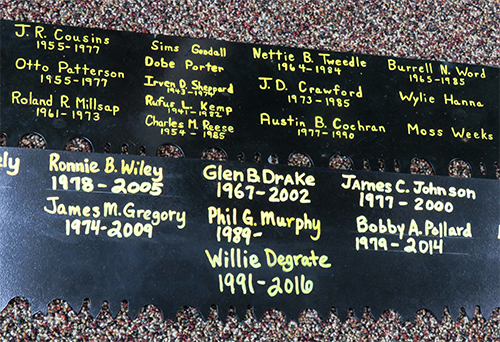 J.R. Cousins
1955-1977
Otto Patterson
1955-1977
Roland R. Millsap
1961-1973
Sims Goodall
Dobe Porter
Irven D. Sheppard
1943-1976
Rufus L. Kemp
1947-1982
Charles M. Reese
1954-1985
Nettie B. Tweedle
1964-1984
J.D. Crawford
1973-1985
Austin B. Cochran
1977-1990
Burrell N. Word
1965-1985
Wylie Hanna
Moss Weeks
ely
Ronnie B. Wiley
1978-2005
James M. Gregory
1974-2009
Glen B. Drake
1967-2002
Phil G. Murphy
1989-
Willie Degrate
1991-2016
James C. Johnson
1977-2000
Bobby A. Pollard
1979-2014